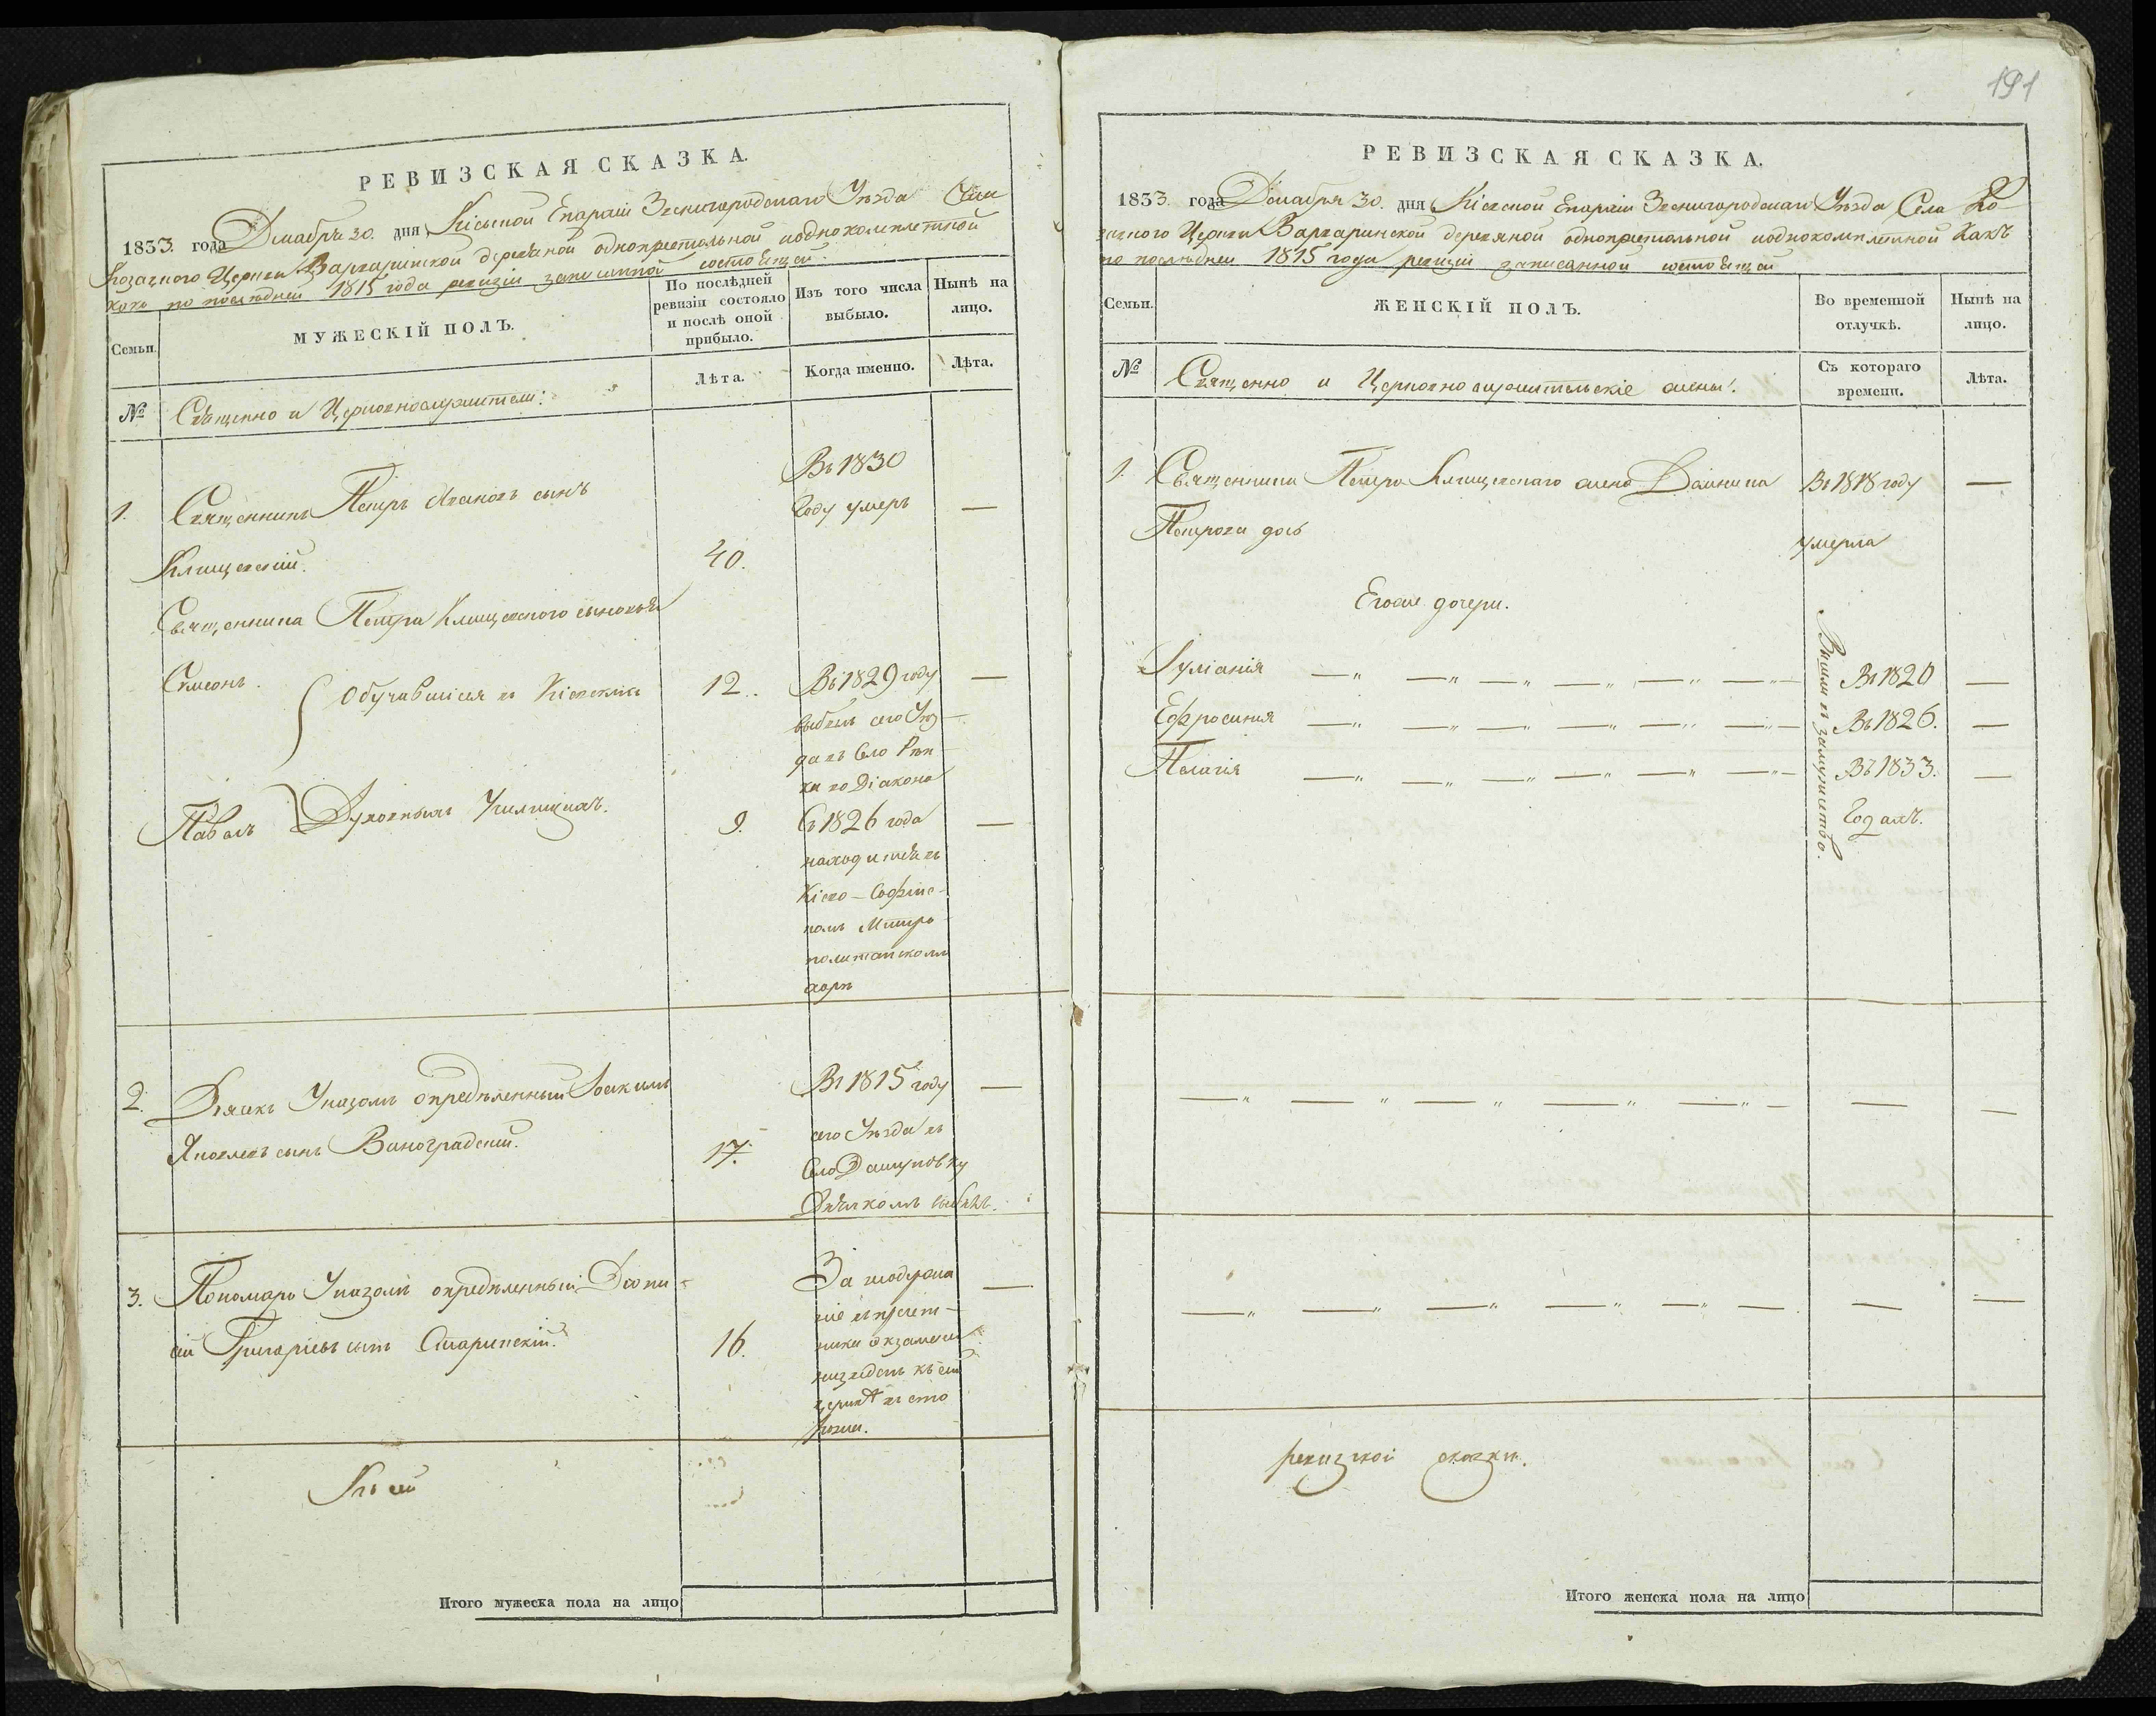 РЕВИЗСКАЯ СКАЗКА.
1833. года Декабря 30. дня, Кіевской Епархіи Звенигородскаго Уѣзда Села
Козачного Церкви Варваринской деревяной однопрестольной и однокомплетной
какъ по последней 1815 года ревизіи записанной состоящей.
Семьи.
МУЖЕСКІЙ ПОЛЪ.
По послѣдней ревизіи состояло и послѣ оной прибыло.
Изъ того числа выбыло.
Нынѣ на лицо.
Лѣта.
Когда именно.
Лѣта.
№
Священно и Церковнослужители:
1. Священникъ Петръ Ивановъ сынъ
Клищевскій.
40.
Въ 1830
году умеръ
—
Священника Петра Клищевского сыновья
Симеонъ.
Обучавшіися въ Кіевскихъ
12.
Въ 1829 году
выбылъ сего Уѣз
да въ Село Рѣп
ки во Діакона
—
Павелъ
Духовныхъ Училищахъ.
9.
Съ 1826 года
находится въ
Кіево-Софійс-
комъ Митро
политанскомъ
хорѣ
—
2. Дьячкъ Указомъ опредѣленный Іоакимъ
Яковлевъ сынъ Виноградскій.
17.
Въ 1815 году
сего Уѣзда въ
Село Дашуковку
Дьячкомъ выбылъ.
—
3. Пономарь Указомъ опредѣленный Діони-
сій Григоріевъ сынъ Старинскій.
16.
ники экзамена
низведенъ къ сей
церкви въ сто
рожи.
—
Къ сей
Итого мужеска пола на лицо
191
РЕВИЗСКАЯ СКАЗКА.
1833. года Декабря 30. дня Кіевской Епархіи Звенигородскаго Уѣзда Села Ко
зачного Церкви Варваринской деревяной однопрестольной и однокомплетной какъ
по последней 1815 года ревизіи записанной состоящей
Семьи.
ЖЕНСКІЙ ПОЛЪ.
Во временной отлучкѣ.
Нынѣ на лицо.
№
Священно и Церковнослужительскіе жены.
Съ котораго времени.
Лѣта.
1. Священника Петра Клищевскаго жена Домникія
Петрова дочь
Въ 1818 году
умерла
—
Егоже дочери.
Вышли въ замужество.
Іуліанія — " — " — " — " — " — " — Въ 1820 —
Ефросинія — " — " — " — " — " — " — Въ 1826. —
Пелагія — " — " — " — " — " — " — Въ 1833. —
Годахъ.
— " — " — " — " — " — — —
— " — " — " — " — " — — —
ревизской сказки.
Итого женска пола на лицо